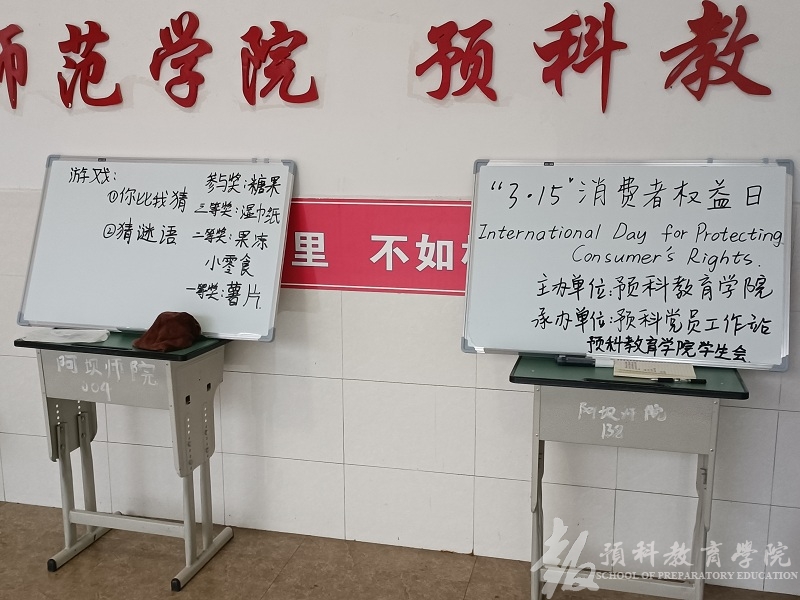 师范学院 预科教
游戏:
①你比我猜
②猜谜语
参与奖:糖果
三等奖:湿巾纸
二等奖:果冻
小零食
一等奖:薯片
里 不如
"3·15"消费者权益日
International Day for Protecting
Consumer's Rights.
主办单位:预科教育学院
承办单位:预科党员工作站
预科教育学院学生会
阿坝师院
004
阿坝师院
138
预科教育学院
SCHOOL OF PREPARATORY EDUCATION